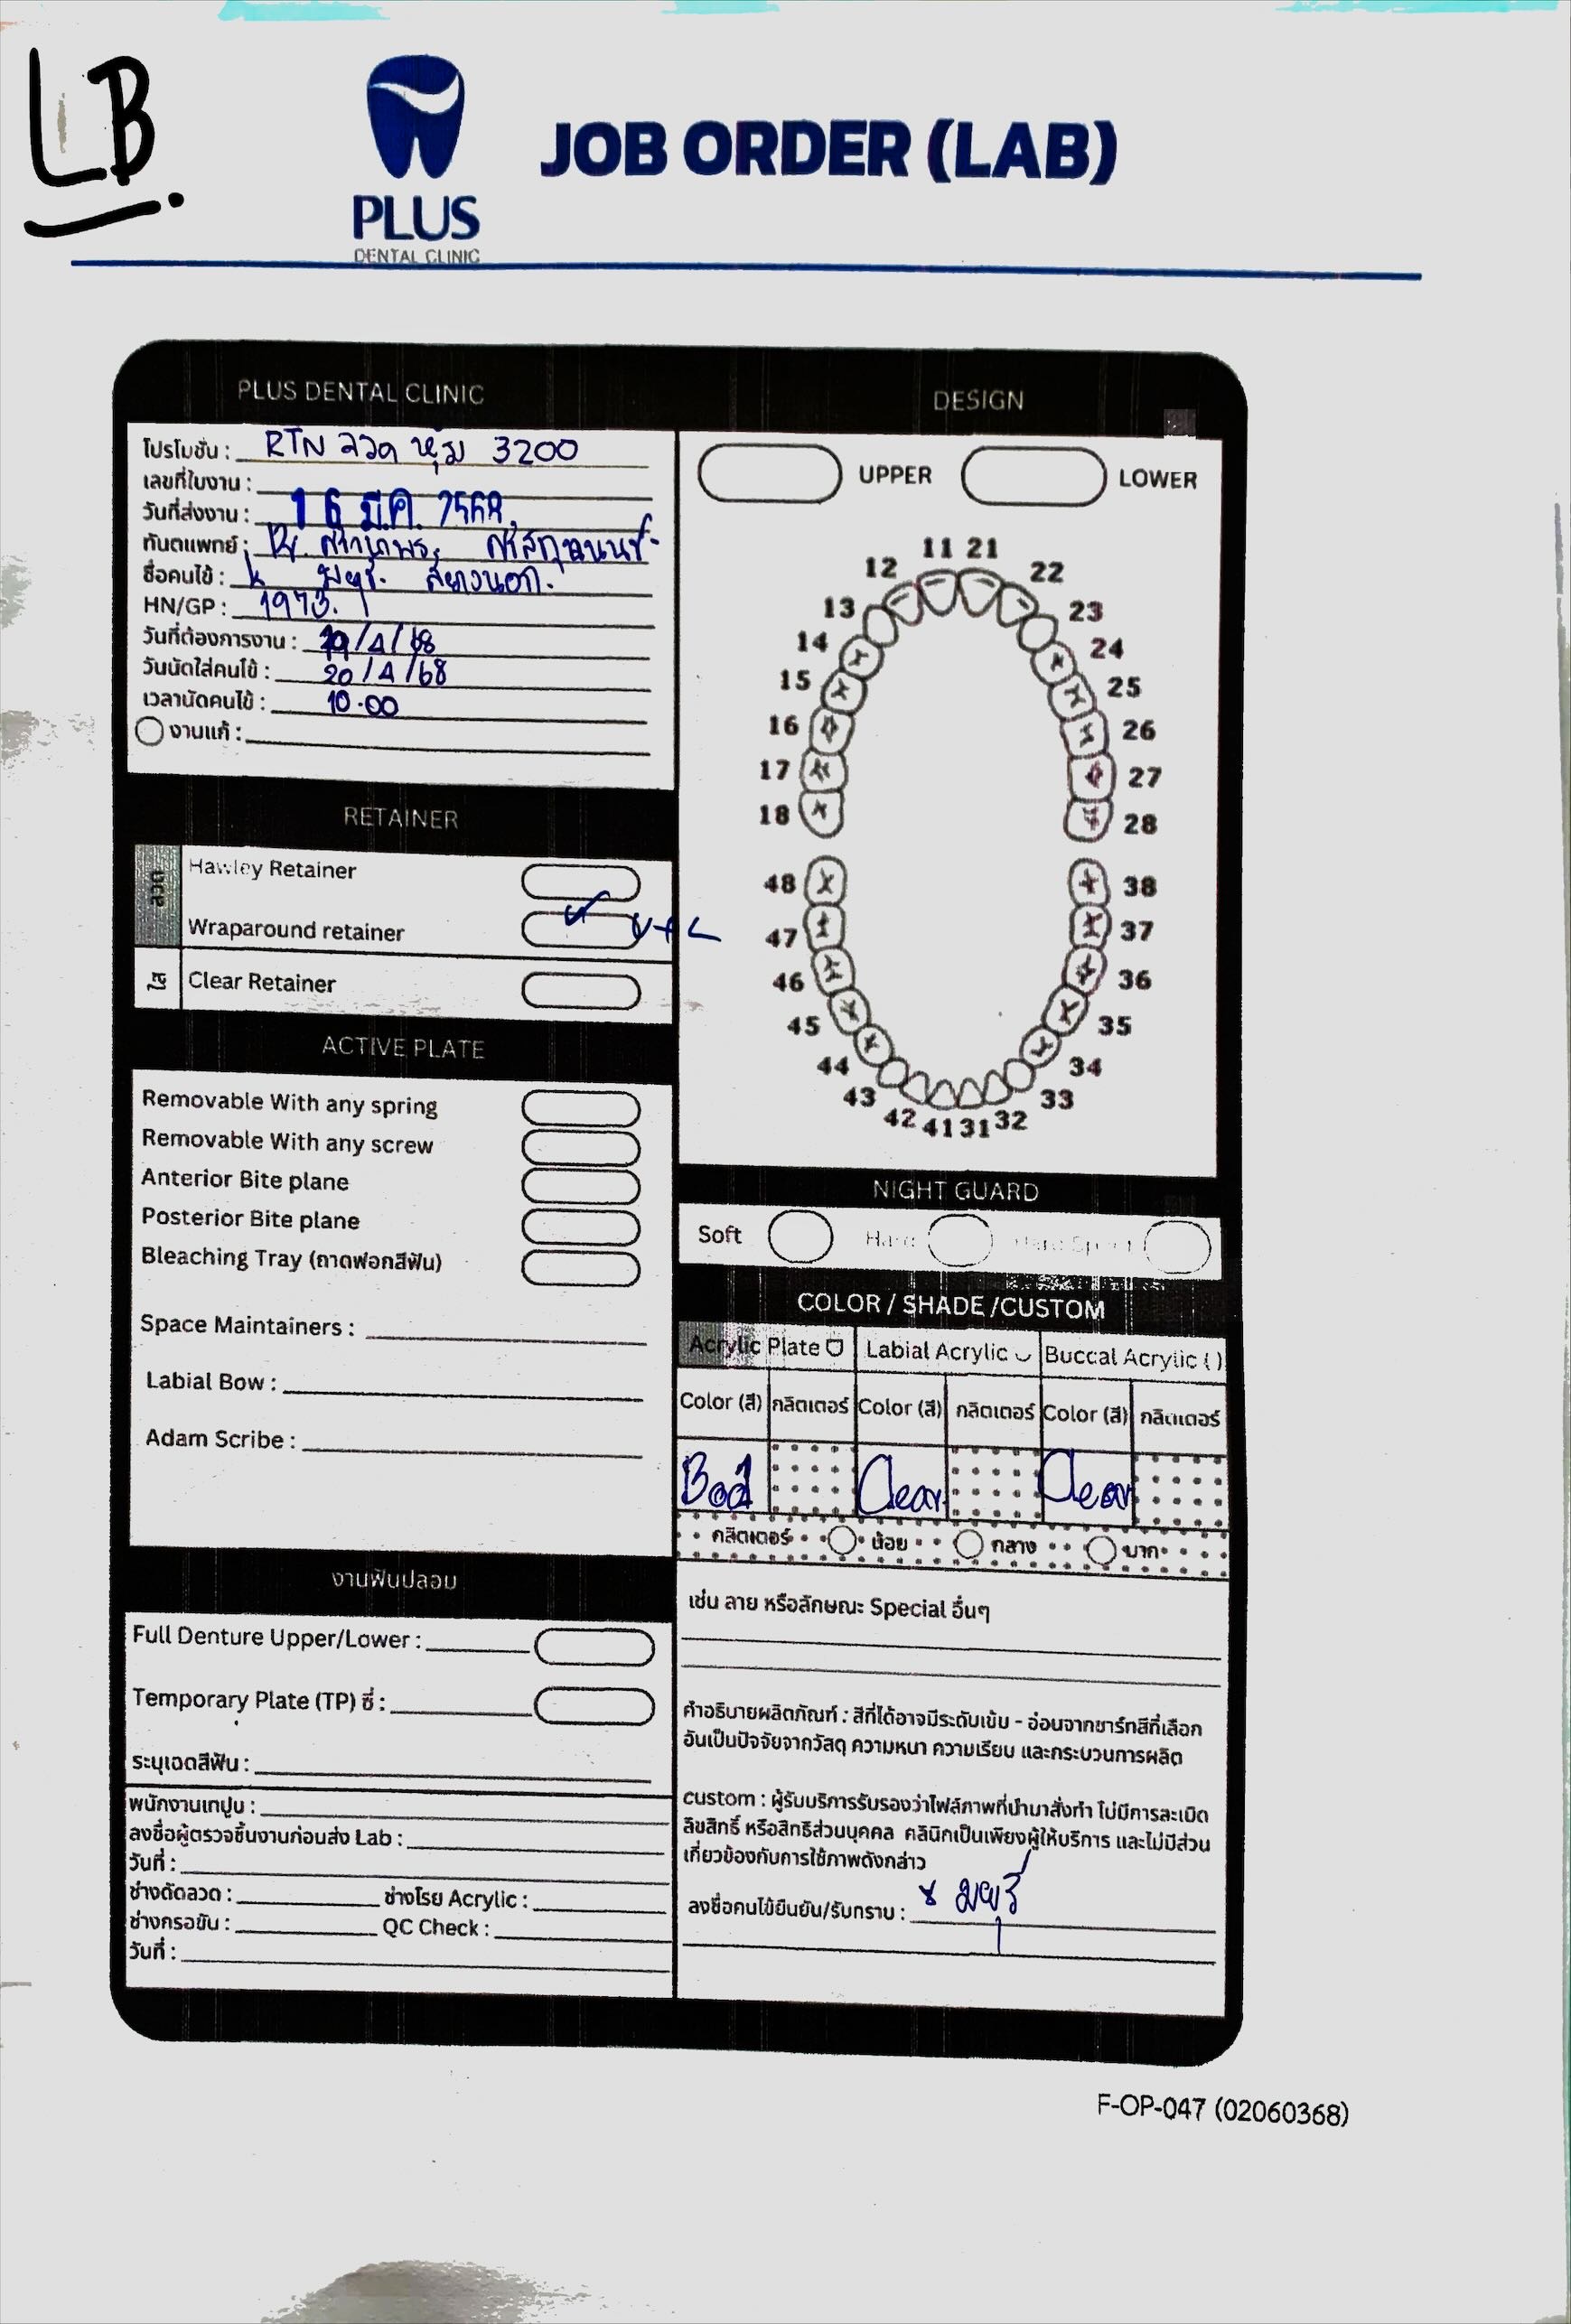 LB.
PLUS
DENTAL CLINIC
JOB ORDER (LAB)
PLUS DENTAL CLINIC
โปรโมชั่น : RTN ลวด หุ้ม 3200
เลขที่ใบงาน :
วันที่ส่งงาน : 16 มี.ค. 2568
ทันตแพทย์ :
ชื่อคนไข้ :
HN/GP : 1973.
วันที่ต้องการงาน : 19/4/68
วันนัดใส่คนไข้ : 20/4/68
เวลานัดคนไข้ : 10.00
งานแก้ :
RETAINER
ลวด
Hawley Retainer
Wraparound retainer ✓ U+L
ใส
Clear Retainer
ACTIVE PLATE
Removable With any spring
Removable With any screw
Anterior Bite plane
Posterior Bite plane
Bleaching Tray (ถาดฟอกสีฟัน)
Space Maintainers :
Labial Bow :
Adam Scribe :
งานฟันปลอม
Full Denture Upper/Lower :
Temporary Plate (TP) ซี่ :
ระบุเฉดสีฟัน :
พนักงานเทปูน :
ลงชื่อผู้ตรวจชิ้นงานก่อนส่ง Lab :
วันที่ :
ช่างดัดลวด : ช่างโรย Acrylic :
ช่างกรอขัน : QC Check :
วันที่ :
DESIGN
UPPER LOWER
11 21
12 22
13 23
14 24
15 25
16 26
17 27
18 28
48 38
47 37
46 36
45 35
44 34
43 33
42 41 31 32
NIGHT GUARD
Soft Hard Hard Sport
COLOR / SHADE /CUSTOM
Acrylic Plate Labial Acrylic Buccal Acrylic ( )
Color (สี) กลิตเตอร์ Color (สี) กลิตเตอร์ Color (สี) กลิตเตอร์
Clear Clear
กลิตเตอร์ น้อย กลาง มาก
เช่น ลาย หรือลักษณะ Special อื่นๆ
คำอธิบายผลิตภัณฑ์ : สีที่ได้อาจมีระดับเข้ม - อ่อนจากชาร์ทสีที่เลือก
อันเป็นปัจจัยจากวัสดุ ความหนา ความเรียบ และกระบวนการผลิต
custom : ผู้รับบริการรับรองว่าไฟล์ภาพที่นำมาสั่งทำ ไม่มีการละเมิด
ลิขสิทธิ์ หรือสิทธิส่วนบุคคล คลินิกเป็นเพียงผู้ให้บริการ และไม่มีส่วน
เกี่ยวข้องกับการใช้ภาพดังกล่าว
ลงชื่อคนไข้ยืนยัน/รับทราบ : x มยุรี
F-OP-047 (02060368)